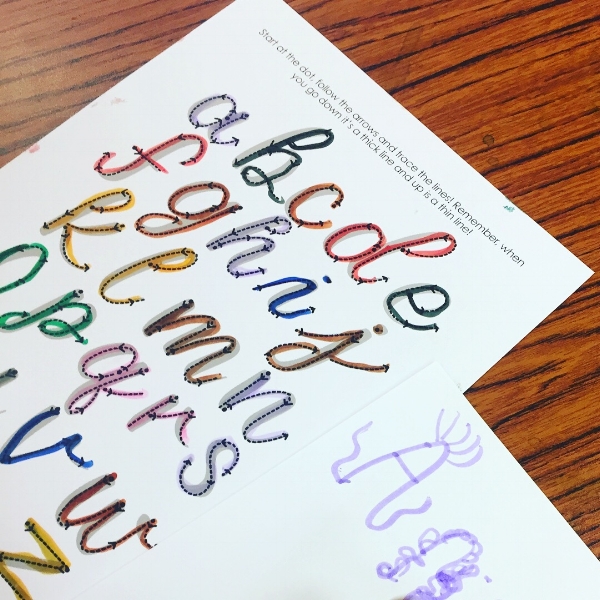 Start at the dot, follow the arrows and trace the lines! Remember, when
you go down it's a thick line and up is a thin line!
a b c d e
f g h i j
k l m n
o p q r s
v
w
z
A